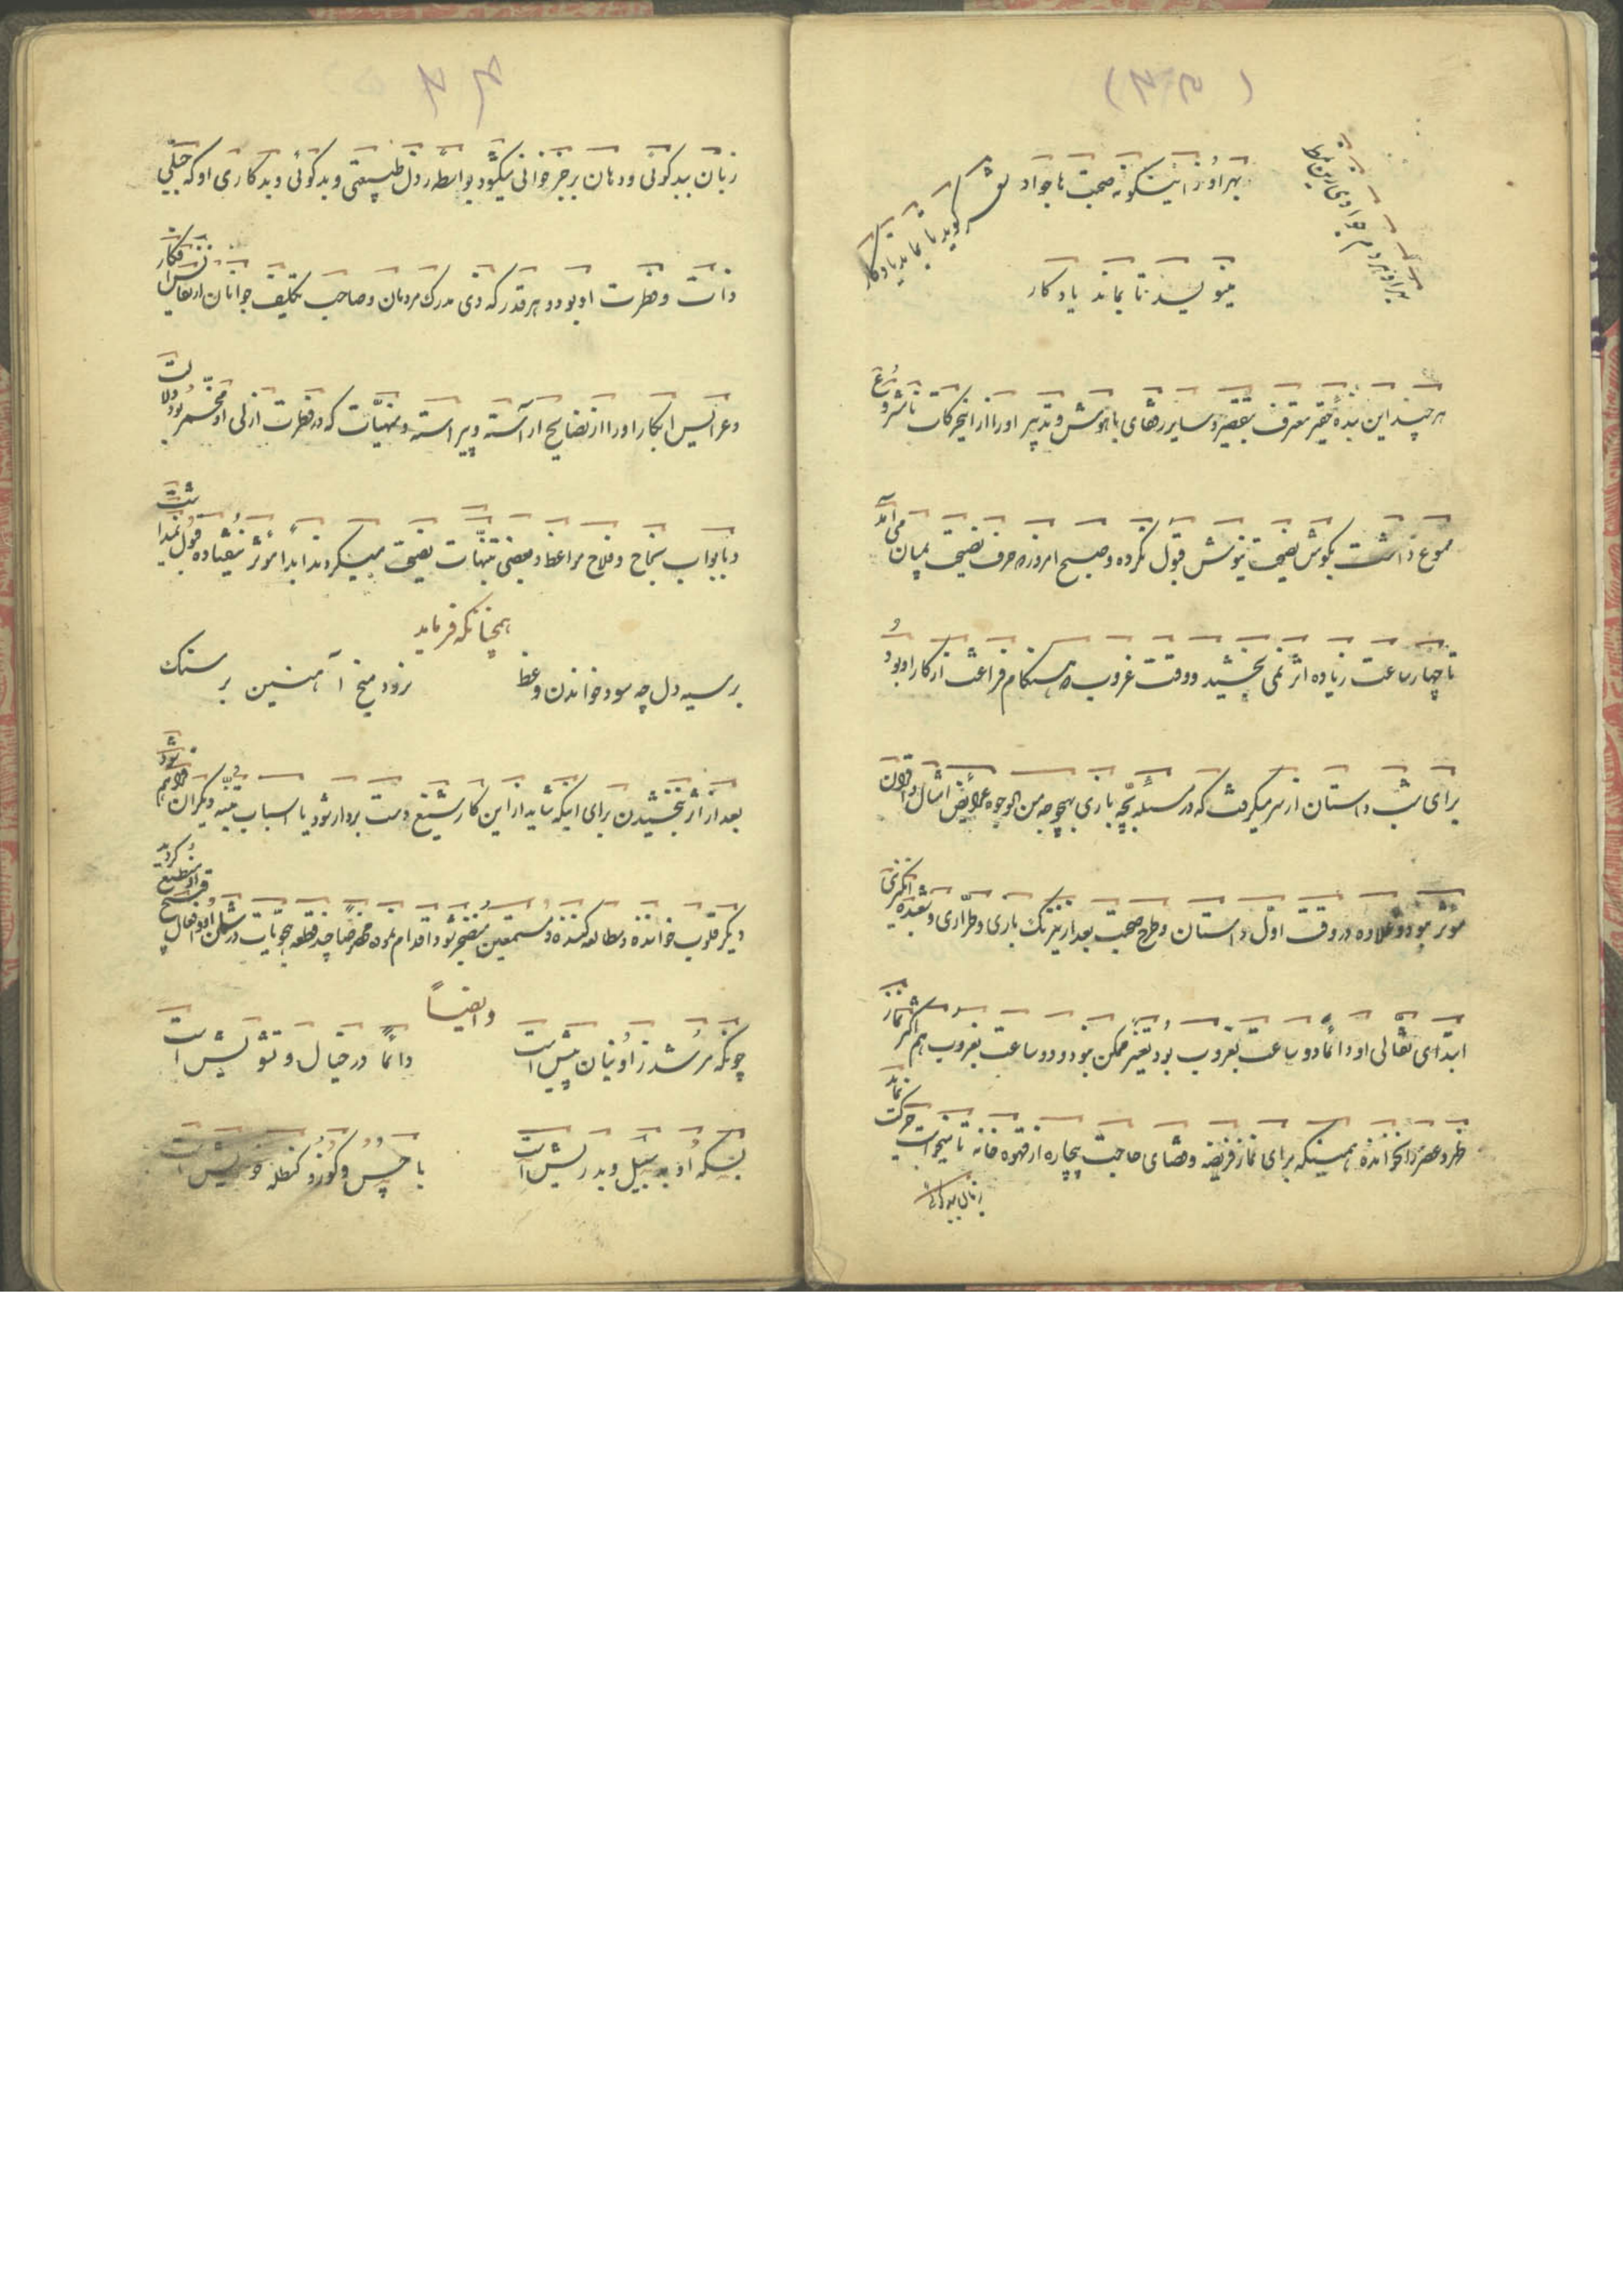 بهر او زاینگونه صحبت ها جواد
مینویسد تا بماند یادکار
هر چند این بندهٔ حقیر معترف بتقصیر و سایر رفقای باهوش و تدبیر او را از اینحرکات نامشروع
ممنوع داشت بکوش نصیحت نیوش قبول نکرده و صبح امروزه حرف نصیحت بمیان می آمد
تا چهار ساعت زیاده اثر نمی بخشید و وقت غروب هنکام فراغت از کار او بود
برای شب داستان از سر میکرفت که در مسئله بچه بازی بهیچوجه من الوجوه عرایض امثال و اقران
مؤثر نبود و علاوه در وقت اول داستان و طرح صحبت بعد از نیرنک بازی و طراری و شعبده انگیزی
ابتدای نقالی او دائما دو ساعت بغروب بود تغییر ممکن نبود و دو ساعت بغروب هم اکثر نماز
ظهر و عصر را نخوانده همینکه برای نماز فریضه و قضای حاجت بیچاره از قهوه خانه تا میخواست حرکت نماید
زبان ببدکوئی
زبان ببدکوئی و دهان برجز خوانی میکشود بواسطه رذل طبیعتی و بدکوئی و بدکاری او که جبلی
ذات و فطرت او بود و هر قدر که ذی مدرک مردمان و صاحب تکلیف جوانان از نفایس افکار
و عرایس ابکار او را از نصایح آراسته و پیراسته و منهیات که در فطرت ازلی او مخمر بود دلالت
و بابواب نجاح و فلاح مواعظ و بعضی تنبیهات نصیحت میکردند ابدا مؤثر نیفتاده قبول نمیداشت
همچنانکه فرماید
بر سیه دل چه سود خواندن وعظ
نرود میخ آهنین بر سنک
بعد از اثر نبخشیدن برای اینکه شاید از این کار شنیع دست بردار شود یا اسباب تنبیه دیکران فراهم شود
دیگر قلوب خواننده و مطالعه کننده و مستمعین منضجر نشود اقدام نموده مختصرا چند قطعه هجویات در شان او و افعال قبیح
و ایضاً
چونکه مرشد ز او نیان پیش است
دائما در خیال و تشویش است
بسکه او بد سبیل و بد ریش است